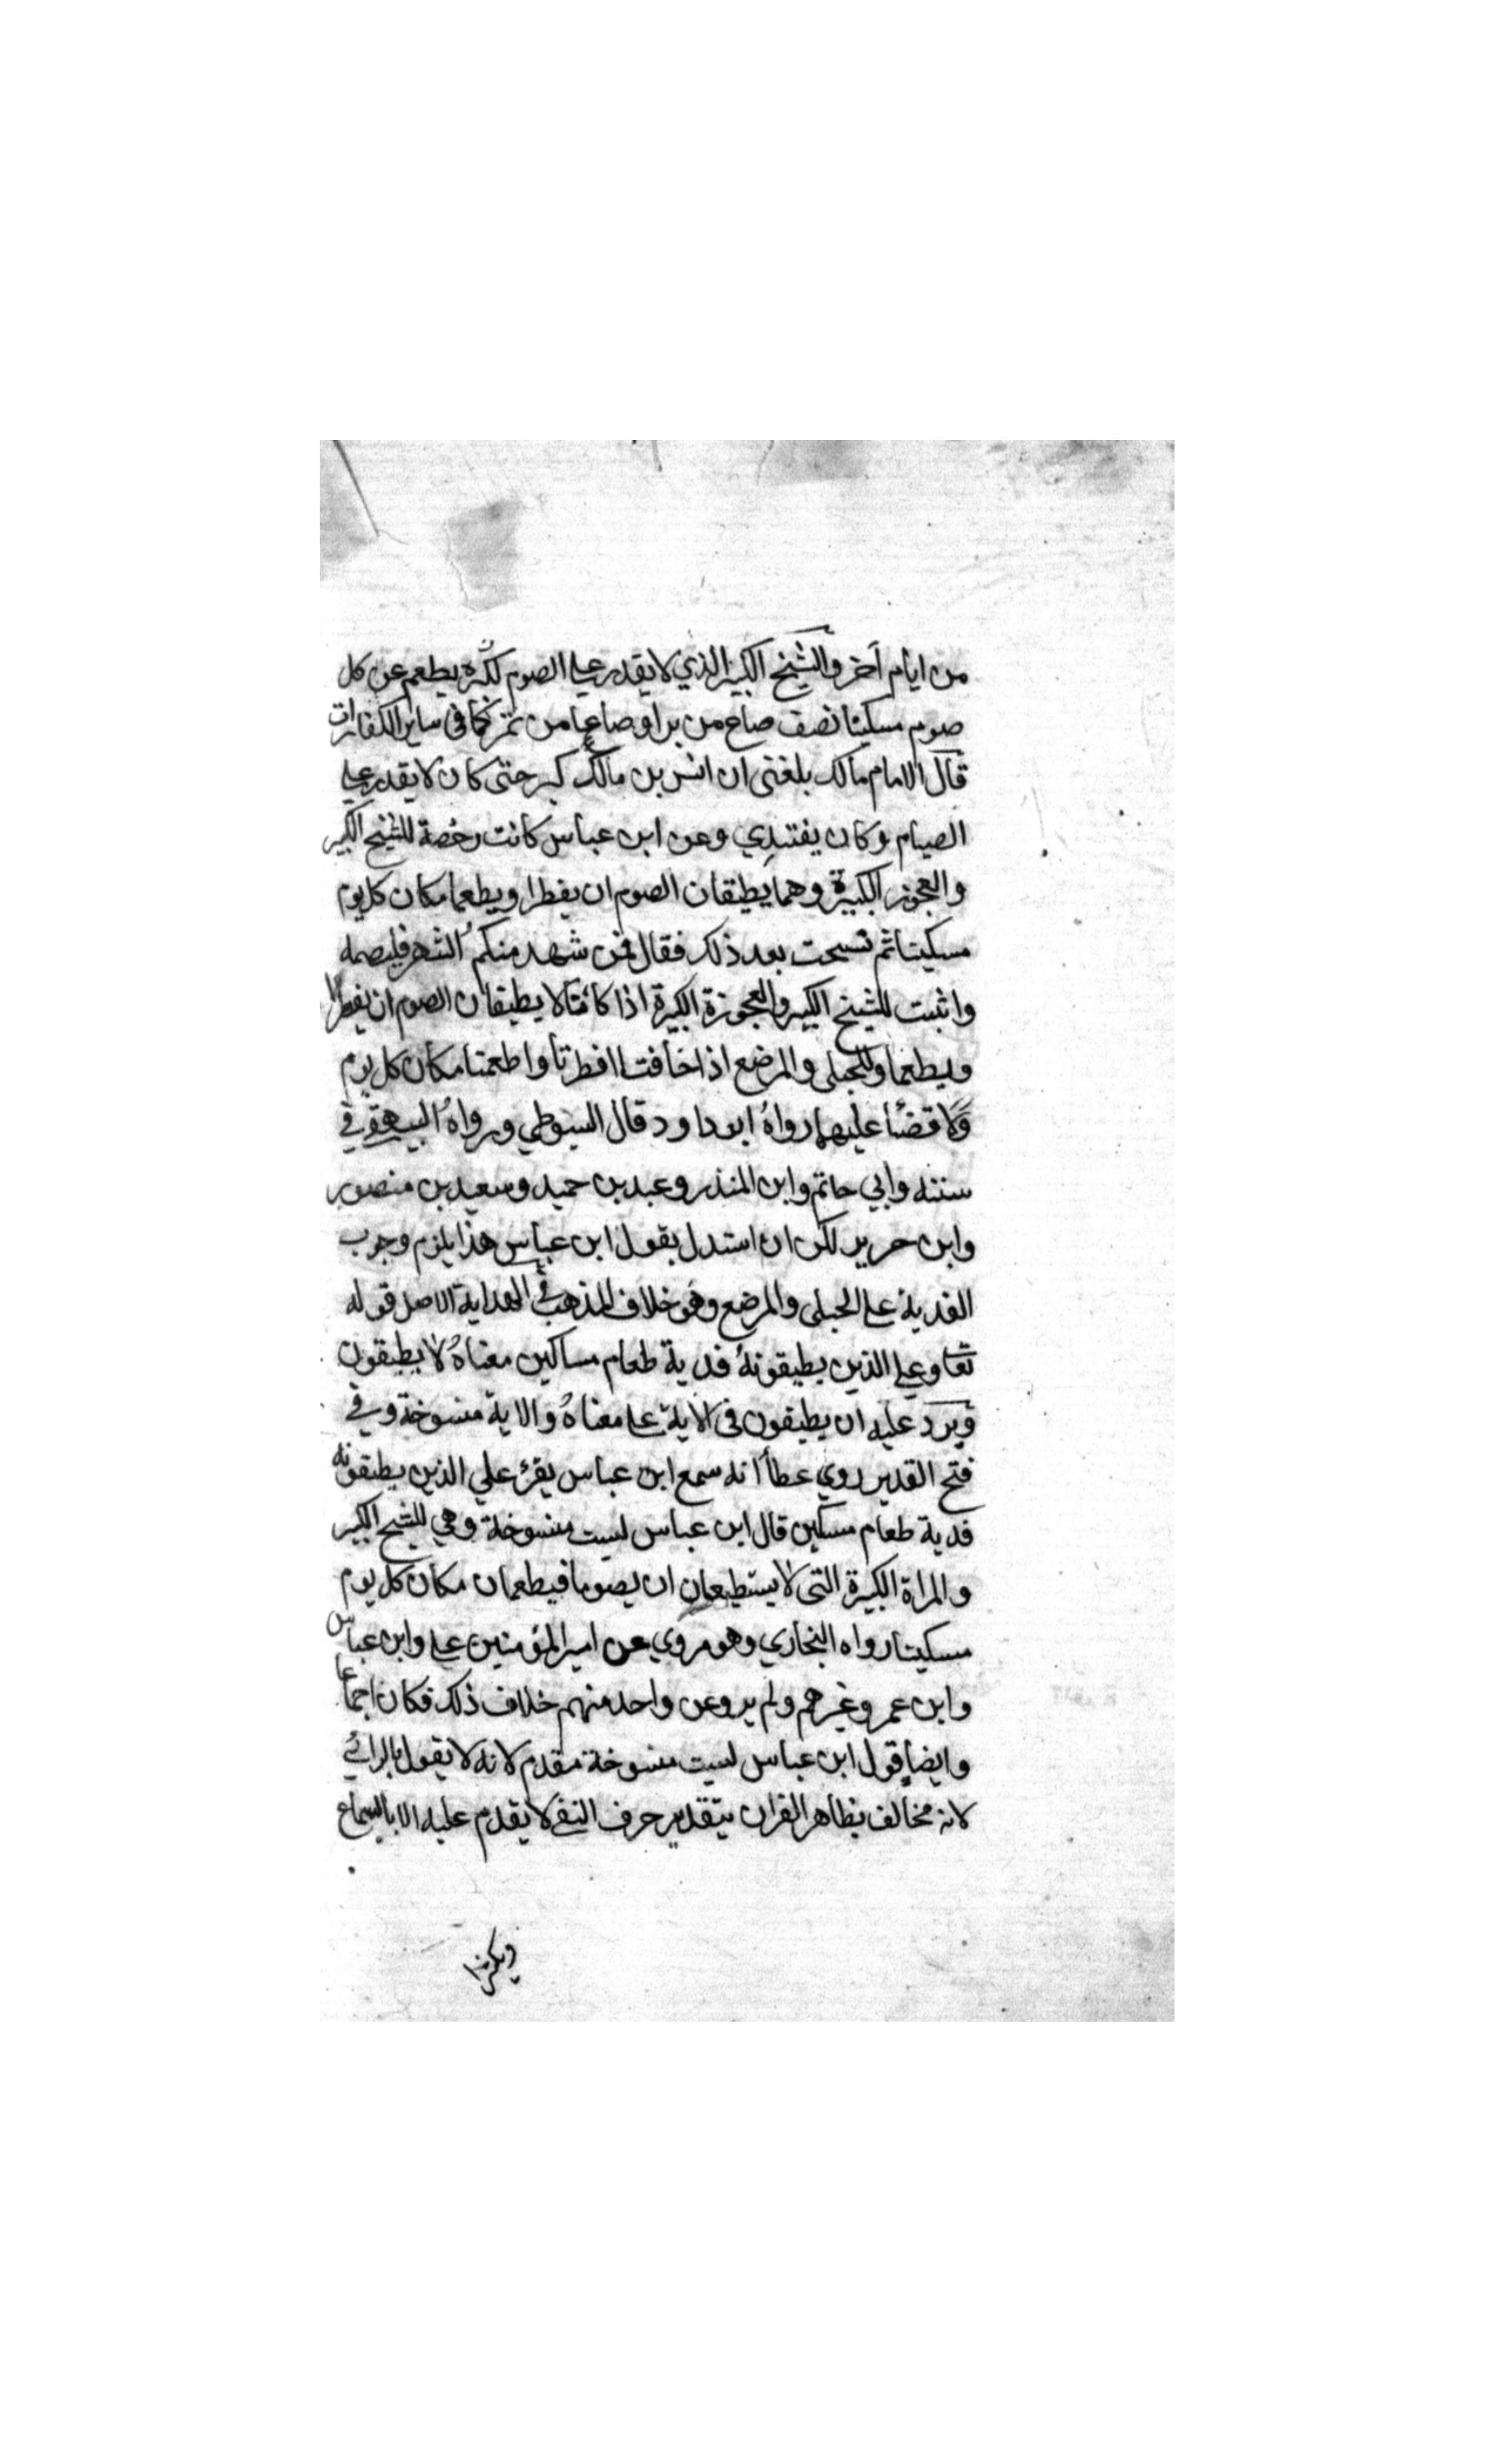 من ايام أخر والشيخ الكبير الذي لا يقدر علي الصوم لكبره يطعم عن كل
صوم مسكينا نصف صاع من بر او صاعا من تمر كما في ساير الكفارات
قال الامام مالك بلغني ان انس بن مالك كبر حتى كان لا يقدر علي
الصيام وكان يفتدي وعن ابن عباس كانت رخصة للشيخ الكبير
والعجوز الكبيرة وهما يطيقان الصوم ان يفطرا ويطعما مكان كل يوم
مسكينا ثم نسخت بعد ذلك فقال فمن شهد منكم الشهر فليصمه
واثبت للشيخ الكبير والعجوزة الكبيرة اذا كانتا لا يطيقان الصوم ان يفطرا
ويطعما وللحبلى والمرضع اذا خافتا افطرتا واطعمتا مكان كل يوم
ولا قضأ عليهما رواهُ ابو داود قال السيوطي ورواهُ البيهقي في
سننه وابي حاتم وابن المنذر وعبد بن حميد وسعيد بن منصور
وابن جرير لكن ان استدل بقول ابن عباس هذا يلزم وجوب
الفدية على الحبلى والمرضع وهو خلاف المذهب في الهداية الاصل قوله
تعا وعلي الذين يطيقونهُ فدية طعام مساكين معناهُ لا يطيقون
ويرد عليه ان يطيقون في الاية على معناهُ والاية منسوخة وفي
فتح القدير روي عطأ انه سمع ابن عباس يقرؤ علي الذين يطيقونه
فدية طعام مسكين قال ابن عباس ليست منسوخة وهي للشيخ الكبير
والمراة الكبيرة التى لا يستطيعان ان يصوما فيطعمان مكان كل يوم
مسكينا رواه البخاري وهو مروي عن امير المؤمنين علي وابن عباس
وابن عمر وغيرهم ولم يرو عن واحد منهم خلاف ذلك فكان اجماعا
وايضا قول ابن عباس ليست منسوخة مقدم لانه لا يقول بالرائي
لانه مخالف بظاهر القران بتقدير حرف النفي لا يقدم عليه الا بالسماع